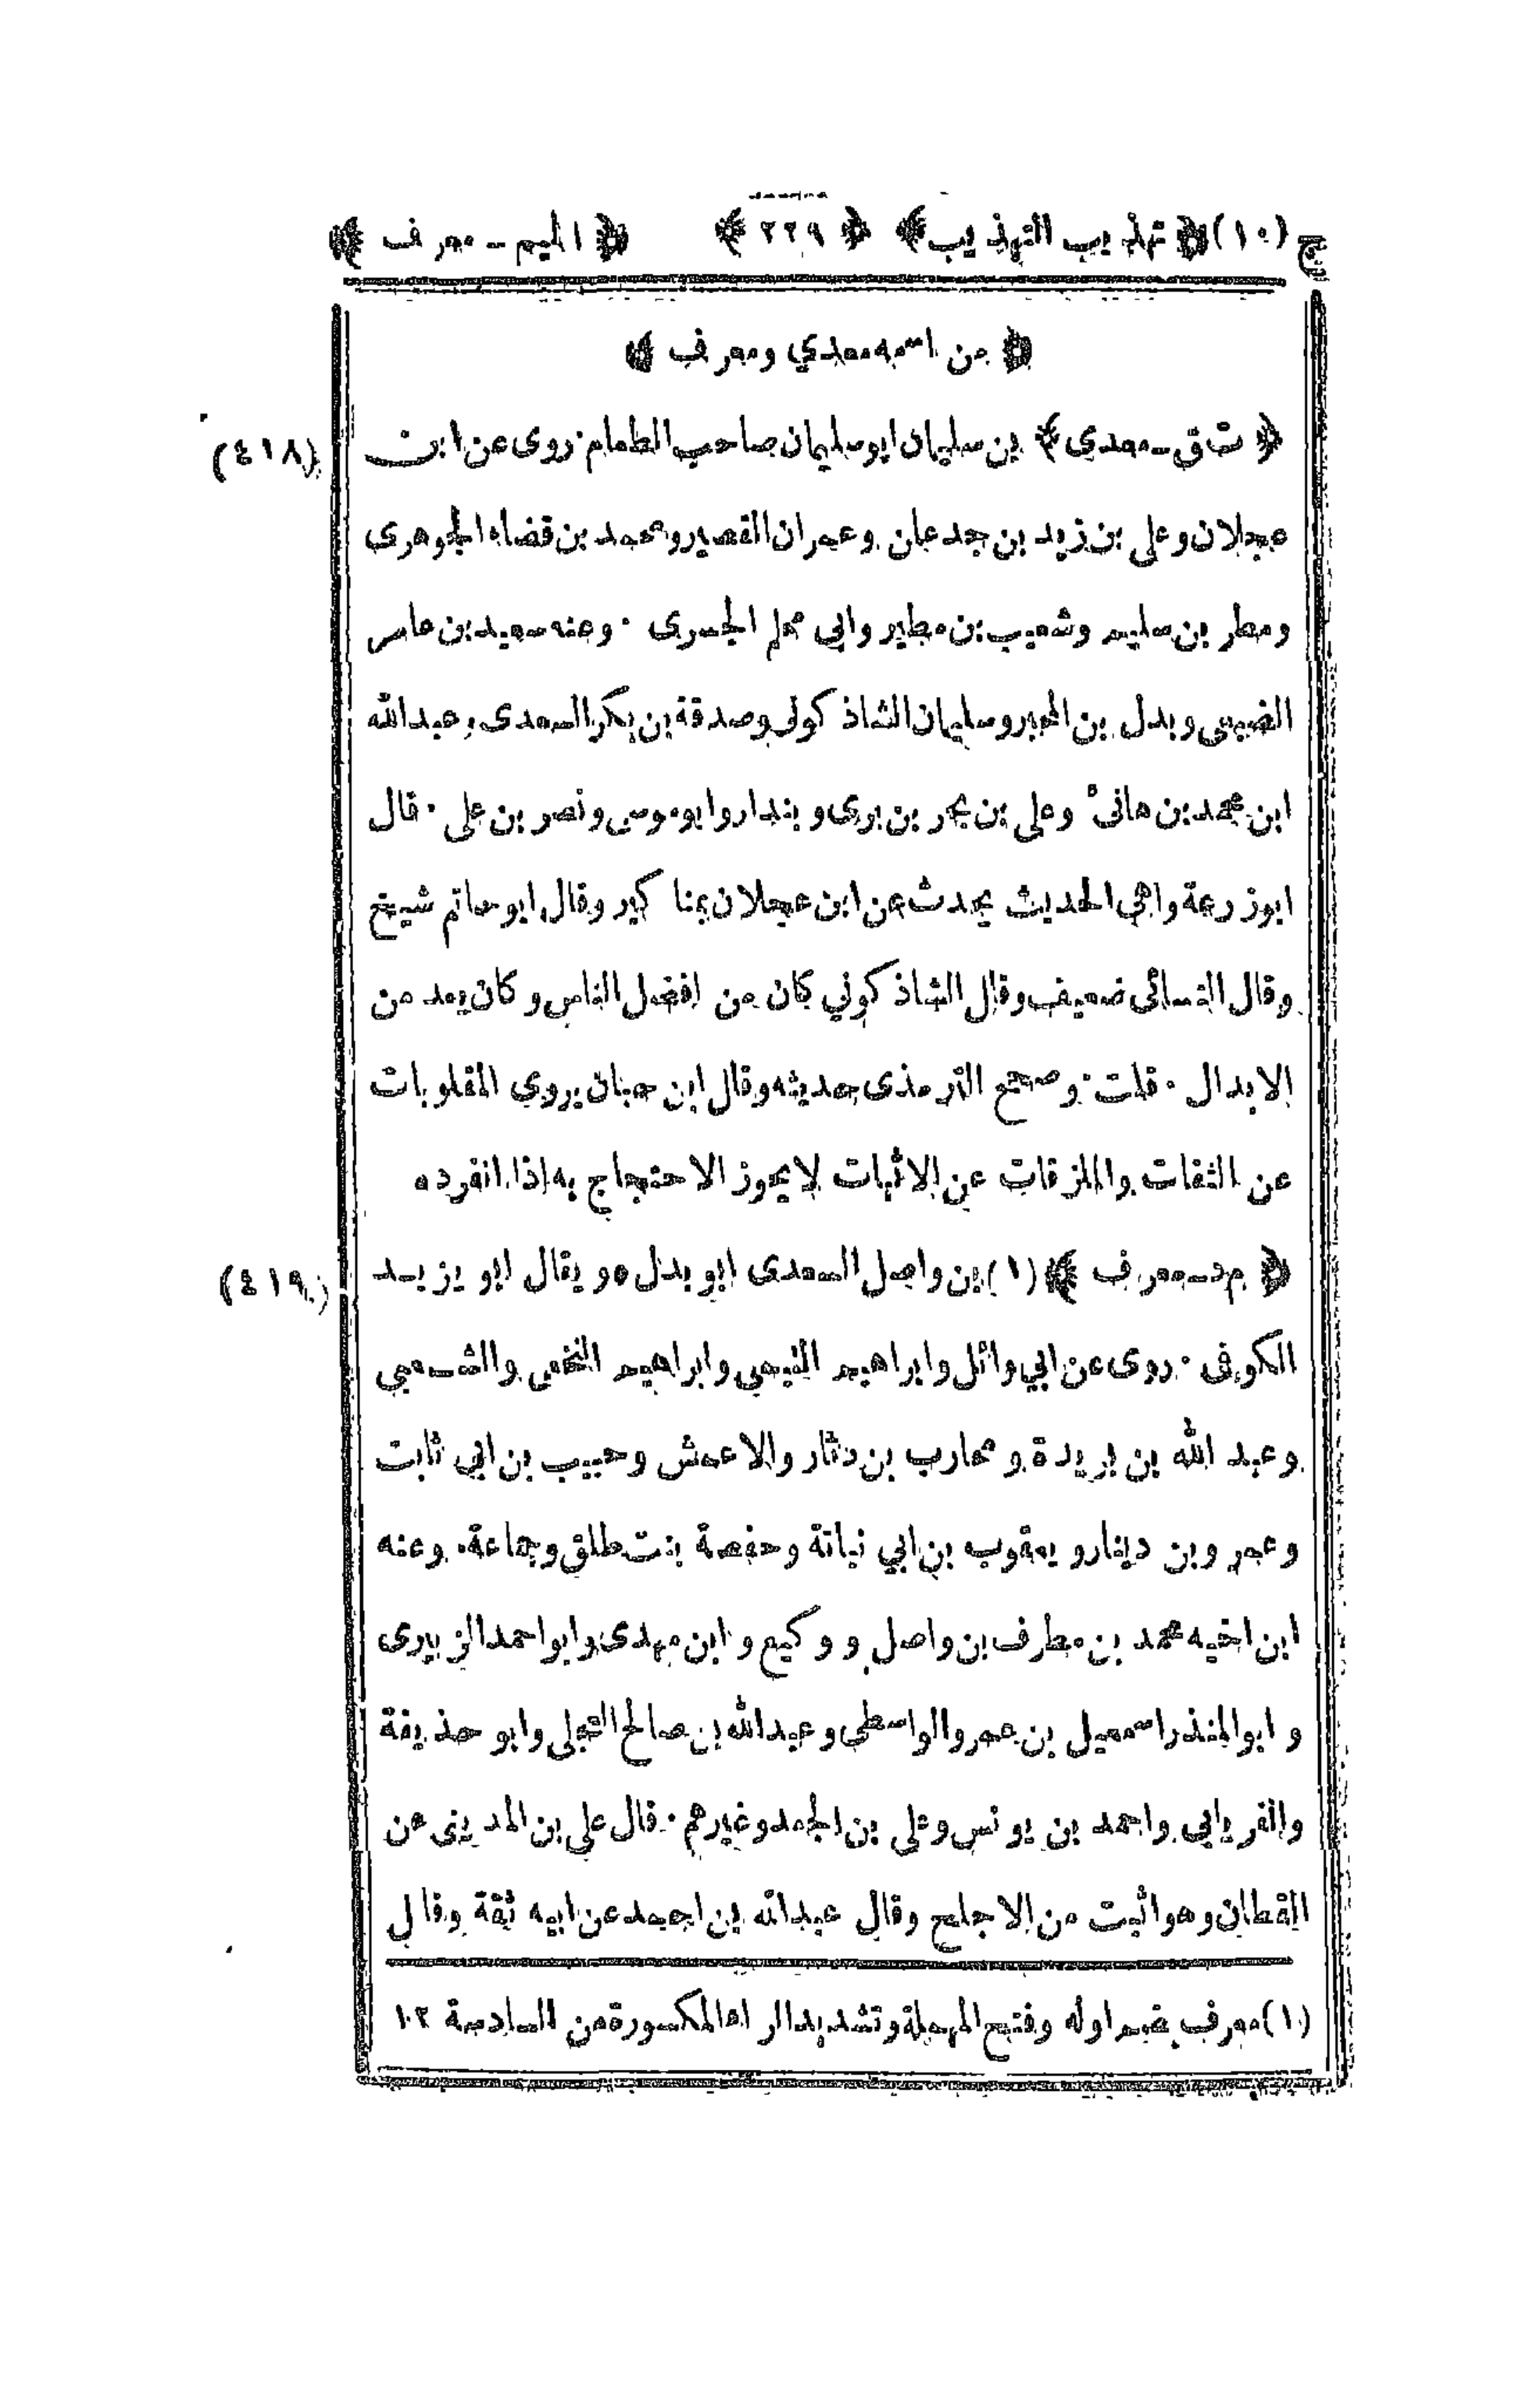 ج (١٠) ﴿ تهذيب التهذيب ﴾ ﴿ ٢٢٩ ﴾ ﴿ الميم - معرف ﴾
﴿ من اسمه معدي ومعرف ﴾
(٤١٨) ﴿ ت ق - معدى ﴾ بن سليمان ابو سليمان صاحب الطعام · روى عن ابن
عجلان وعلى بن زيد بن جدعان وعمران القصير ومحمد بن قضاء الجوهرى
ومطر بن سليم وشعيب بن مطير وابي محلم الجسرى · وعنه سعيد بن عامر
الضبعى وبدل بن المحبر وسليمان الشاذكونى وصدقة بن بكر السعدى وعبد الله
ابن محمد بن هانئ وعلى بن بحر بن برى وبندار وابو موسى ونصر بن على · قال
ابو زرعة واهي الحديث يحدث عن ابن عجلان بمناكير وقال ابو حاتم شيخ
وقال النسائى ضعيف وقال الشاذكوني كان من افضل الناس وكان يعد من
الابدال · قلت · وصحح الترمذى حديثه وقال ابن حبان يروي المقلوبات
عن الثقات والملزقات عن الاثبات لا يجوز الاحتجاج به اذا انفرد ٥
(٤١٩) ﴿ م د - معرف ﴾ (١) بن واصل السعدى ابو بدل ٥ ويقال ابو يزيد
الكوفى · روى عن ابي وائل وابراهيم التيمى وابراهيم النخعى والشعبي
وعبد الله بن بريدة ومحارب بن دثار والاعمش وحبيب بن ابي ثابت
وعمرو بن دينار ويعقوب بن ابي نباتة وحفصة بنت طلق وجماعة · وعنه
ابن اخيه محمد بن مطرف بن واصل ووكيع وابن مهدى وابو احمد الزبيرى
وابو المنذر اسمعيل بن عمر والواسطى وعبد الله بن صالح العجلى وابو حذيفة
والفريابي واحمد بن يونس وعلى بن الجعد وغيرهم · قال على بن المدينى عن
القطان وهو اثبت من الاجلح وقال عبد الله بن احمد عن ابيه ثقة وقال
(١) معرف بضم اوله وفتح المهملة وتشديد الراء المكسورة من السادسة ١٢